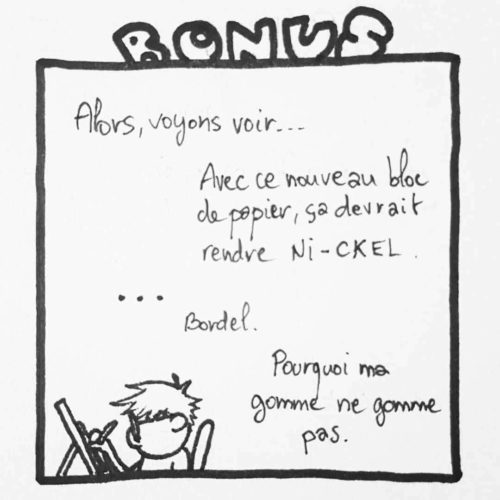 BONUS
Alors, voyons voir...
Avec ce nouveau bloc
de papier, ça devrait
rendre Ni-CKEL.
...
Bordel.
Pourquoi ma
gomme ne gomme
pas.